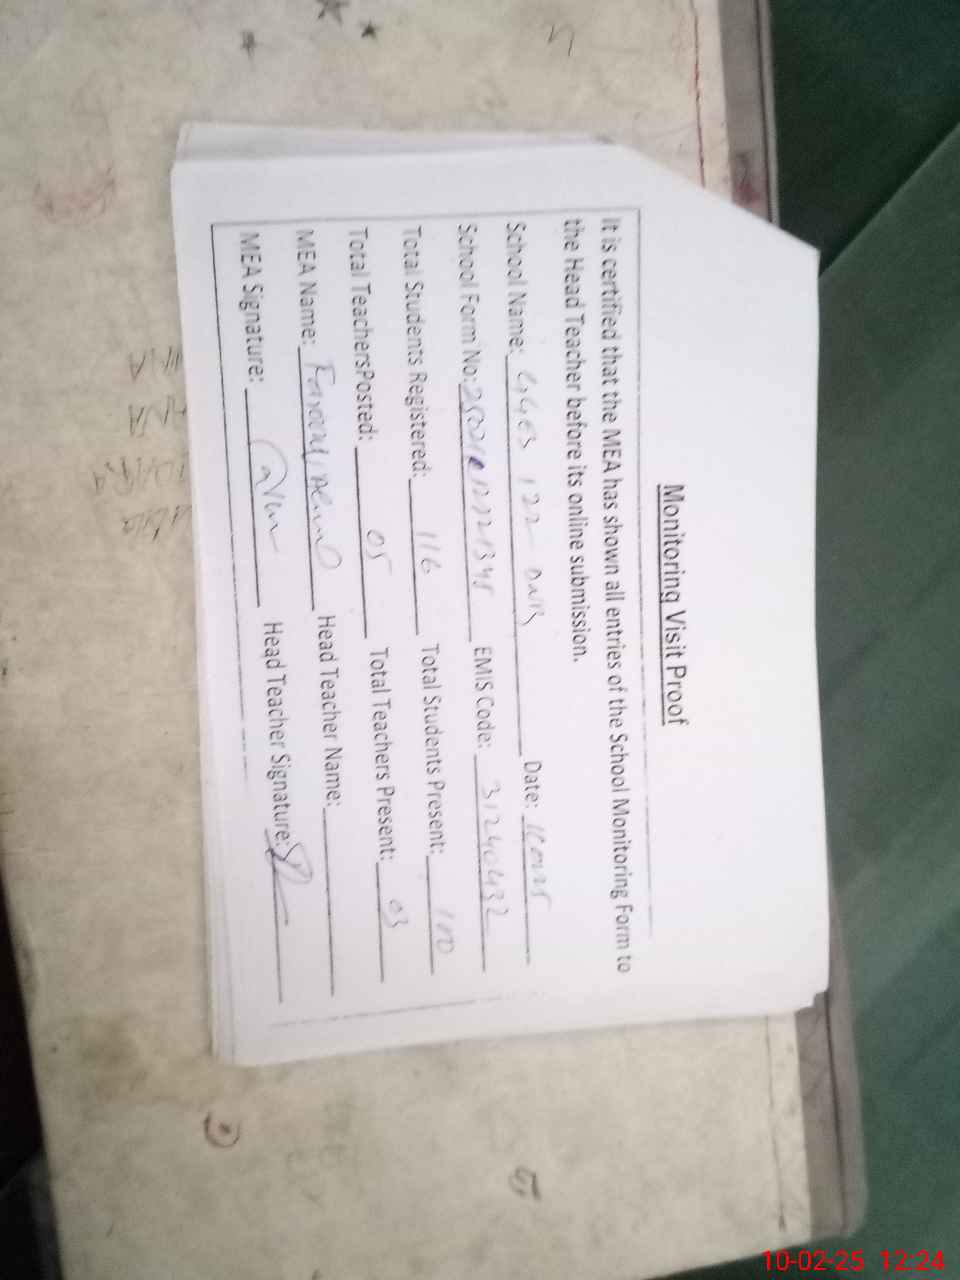 Monitoring Visit Proof
It is certified that the MEA has shown all entries of the School Monitoring Form to
the Head Teacher before its online submission.
School Name: 122 DNB Date:
School Form No: EMIS Code: 31240432
Total Students Registered: 116 Total Students Present: 100
Total TeachersPosted: 05 Total Teachers Present: 03
MEA Name: Head Teacher Name:
MEA Signature: Head Teacher Signature:
10-02-25 12:24